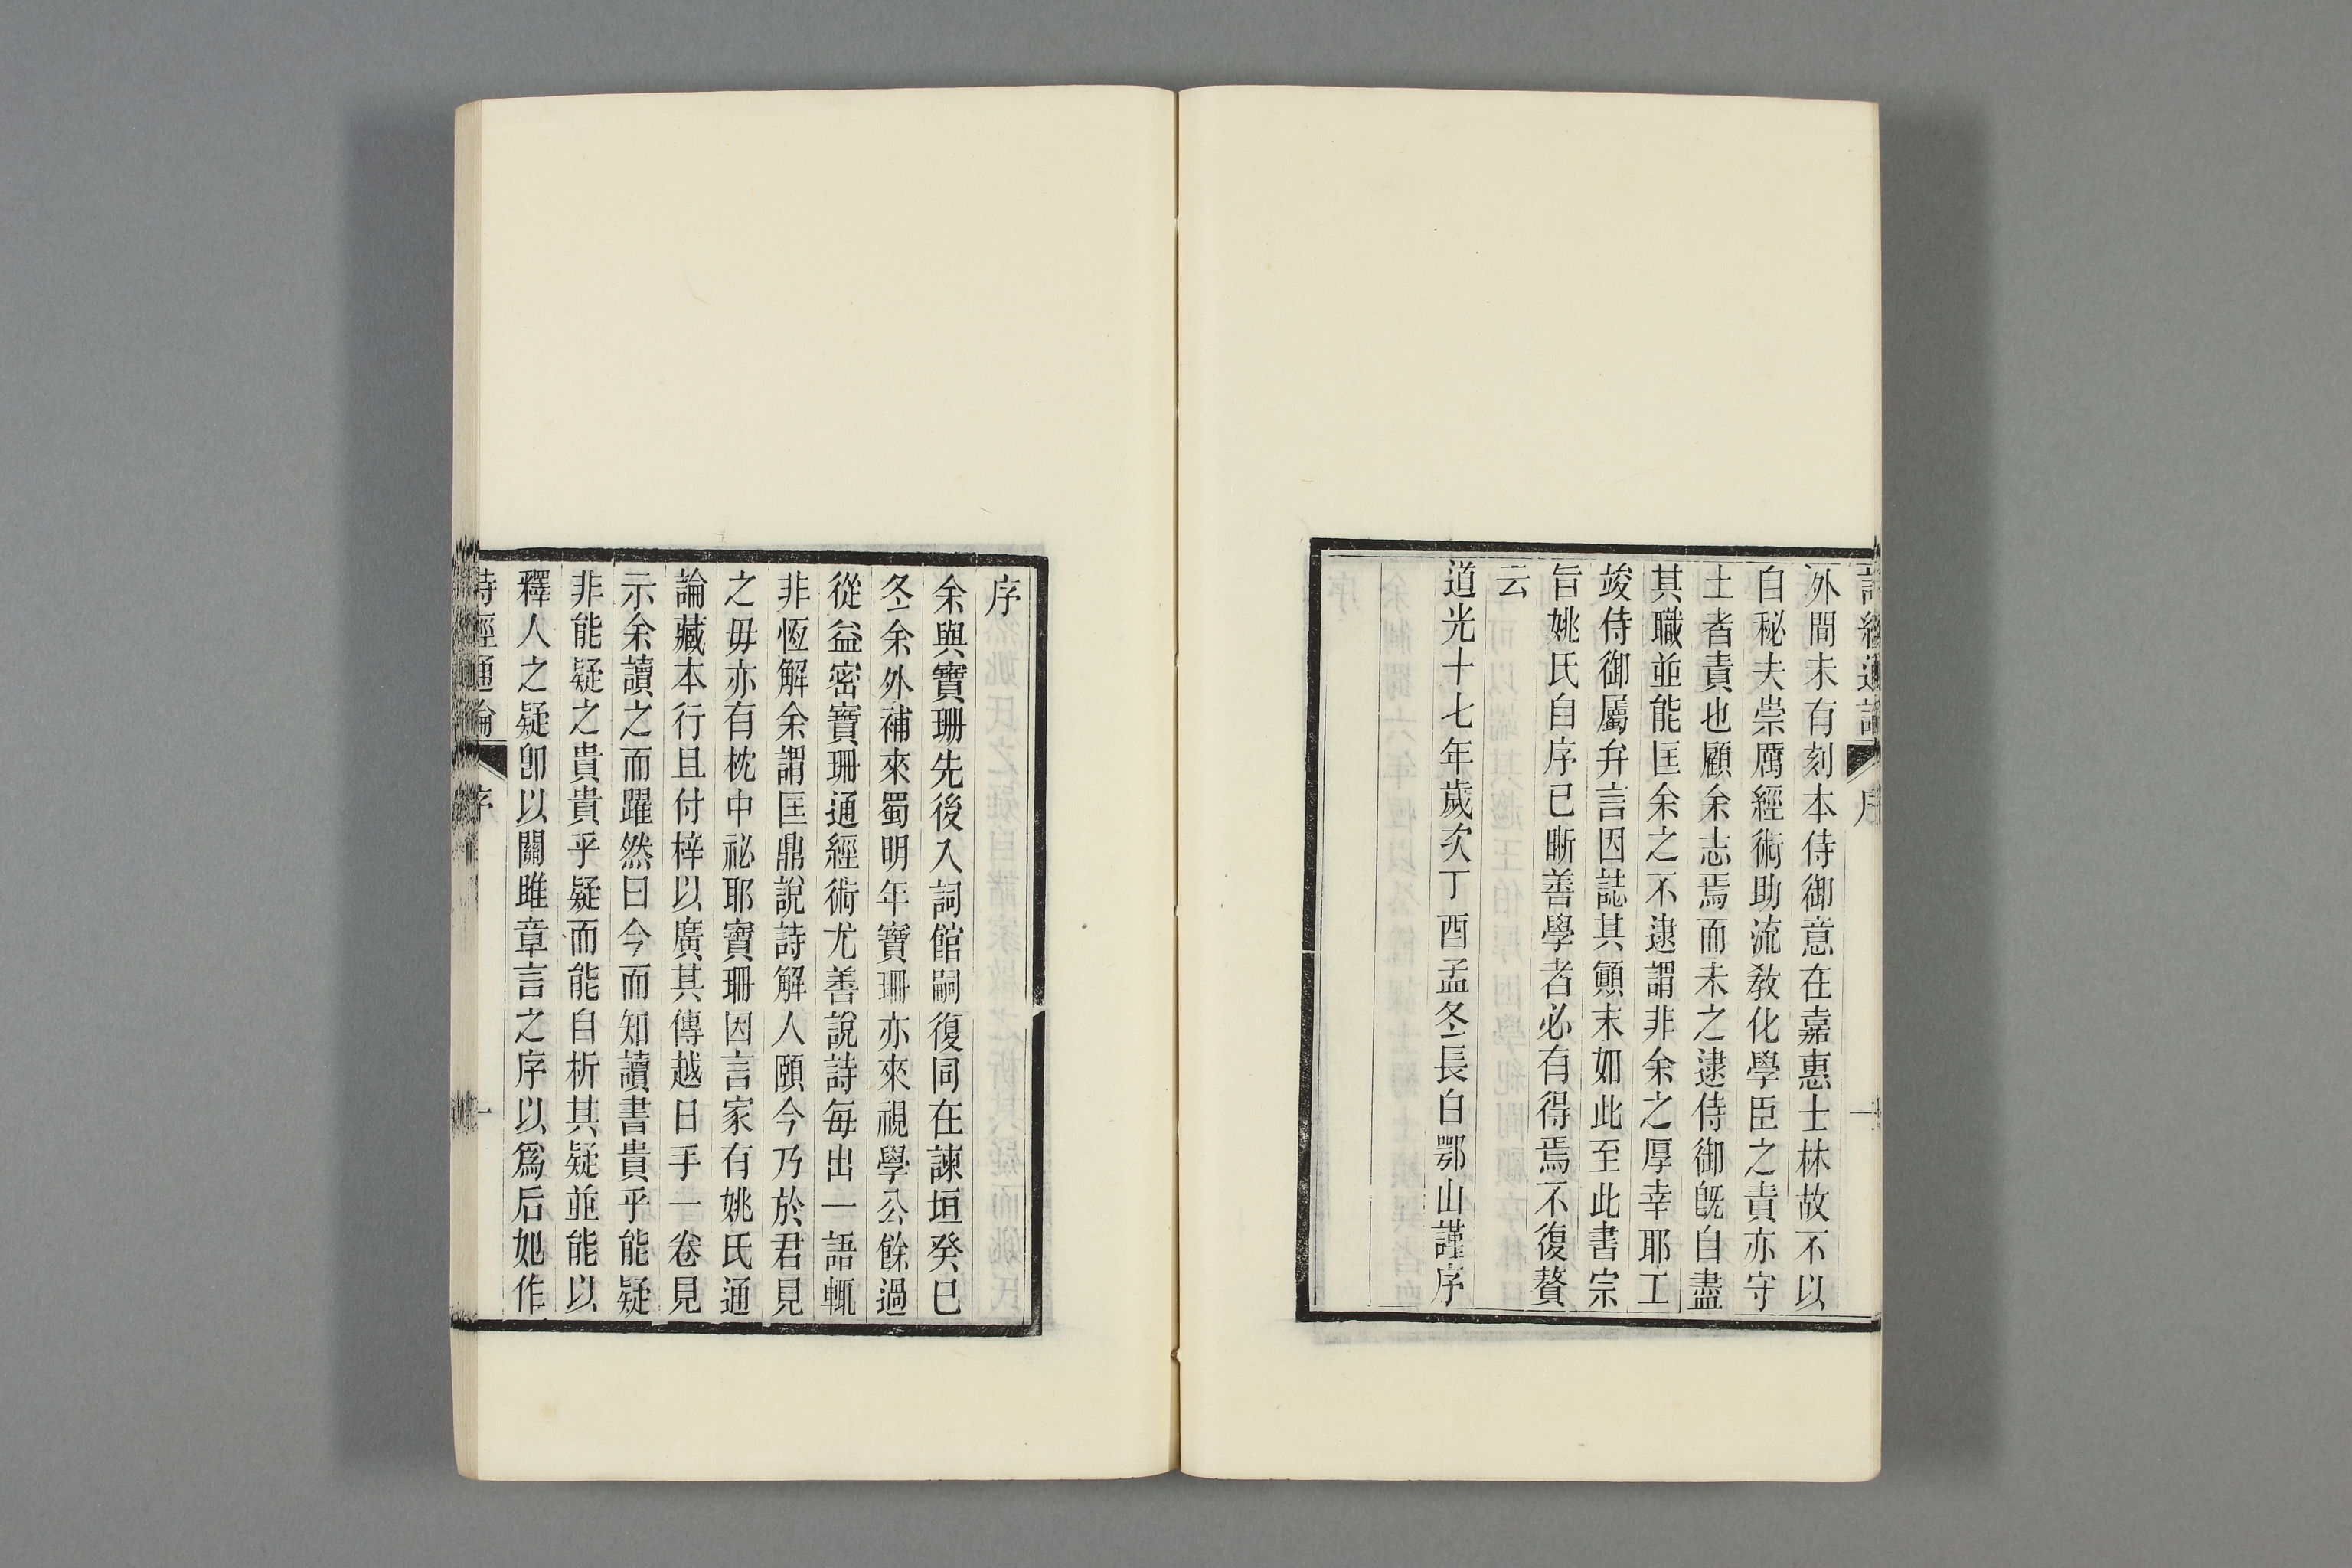 詩經通論
序
一
外間未有刻本侍御意在嘉惠士林故不以
自秘夫崇厲經術助流敎化學臣之責亦守
土者責也顧余志焉而未之逮侍御旣自盡
其職並能匡余之不逮謂非余之厚幸耶工
竣侍御屬弁言因誌其顚末如此至此書宗
旨姚氏自序已晰善學者必有得焉不復贅
云
道光十七年歲次丁酉孟冬長白鄂山謹序
序
余與寶珊先後入詞館嗣復同在諫垣癸巳
冬余外補來蜀明年寶珊亦來視學公餘過
從益密寶珊通經術尤善說詩每出一語輒
非恆解余謂匡鼎說詩解人頤今乃於君見
之毋亦有枕中祕耶寶珊因言家有姚氏通
論藏本行且付梓以廣其傳越日手一卷見
示余讀之而躍然曰今而知讀書貴乎能疑
非能疑之貴貴乎疑而能自析其疑並能以
釋人之疑卽以關雎章言之序以爲后妃作
詩經通論
序
一